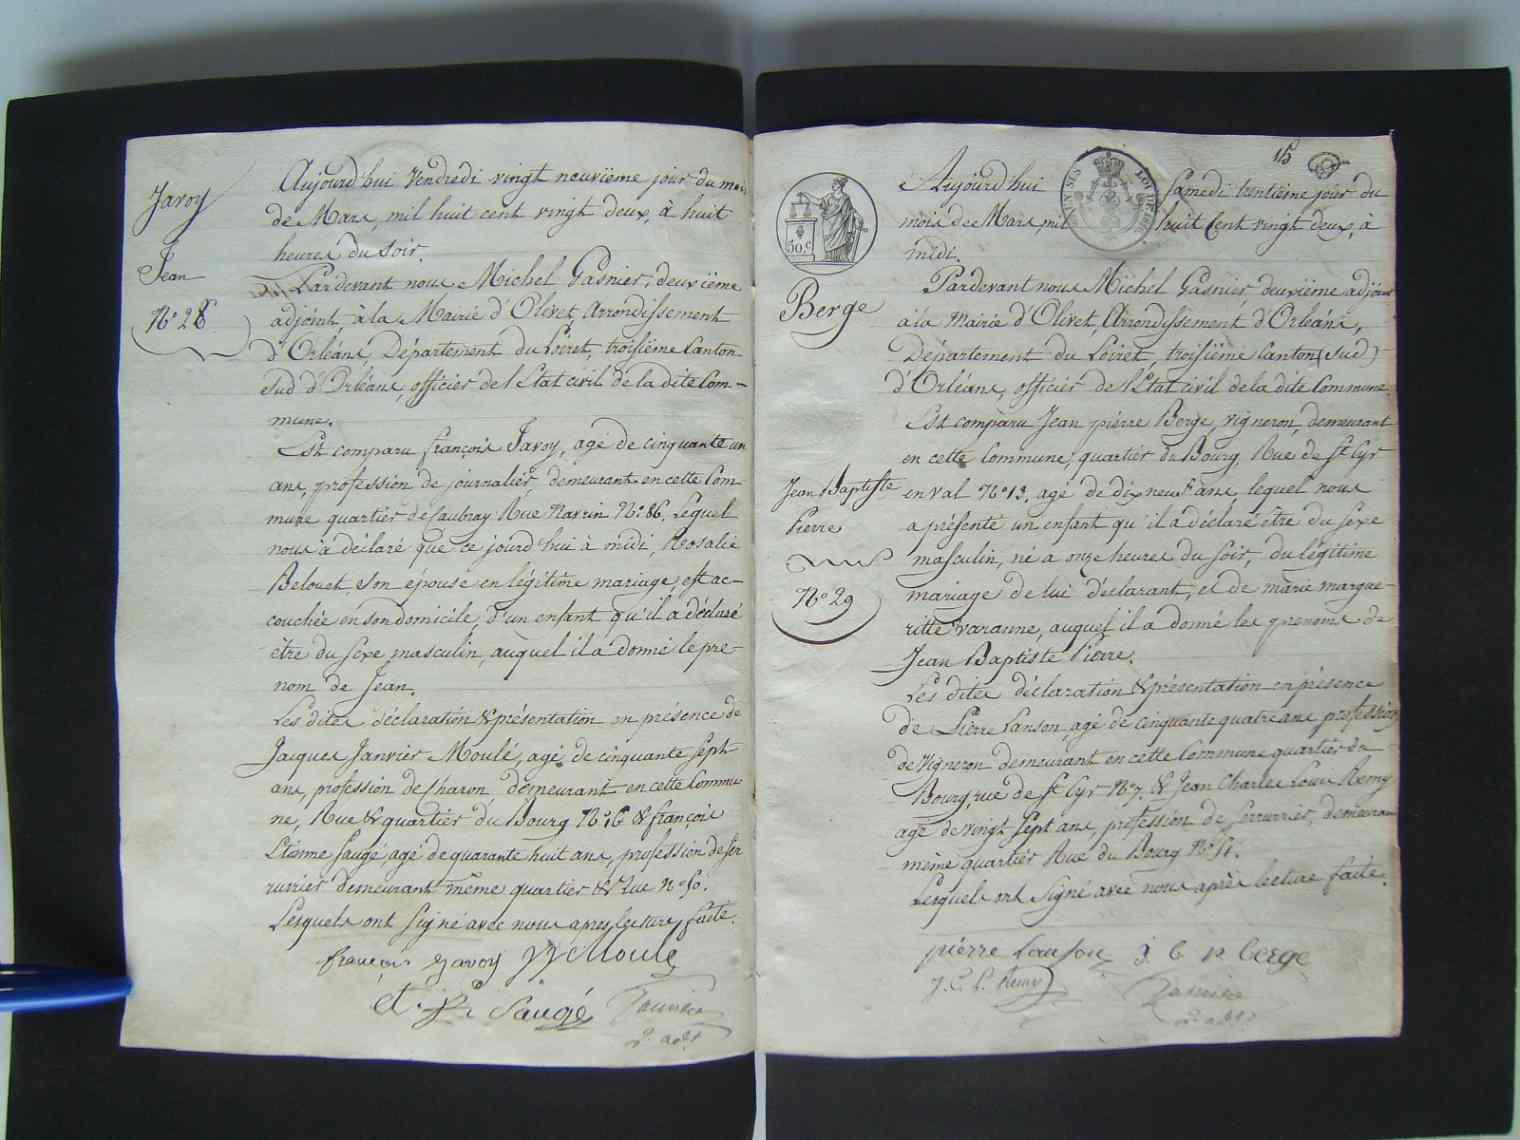 Javoy
Jean
N.o 28
Aujourd'hui Vendredi vingt neuvième jour du mois
de Mars, mil huit cent vingt deux, à huit
heures du soir.
Pardevant nous Michel Gasnier, deuxième
adjoint à la Mairie d'Olivet, Arrondissement
d'Orléans, Département du Loiret, troisième Canton
Sud d'Orléans, officier de l'Etat civil de la dite Com-
mune.
Est comparu françois Javoy, agé de cinquante un
ans, profession de journalier, demeurant en cette Com
mune quartier de Rue N.o 86. Lequel
nous à déclaré que ce jourd'hui à midi, Rosalie
Belouet, son épouse en légitime mariage, est ac-
couchée en son domicile, d'un enfant qu'il a déclaré
être du sexe masculin, auquel il a donné le pre-
nom de Jean.
Les dites déclaration & présentation en présence de
Jacques Janvier Moulé, agé de cinquante sept
ans, profession de Charon, demeurant en cette Commu
ne, Rue & quartier du Bourg N.o 16 & françois
Etienne Saugé, agé de quarante huit ans, profession de ser
rurier demeurant même quartier & Rue n.o 50.
Lesquels ont signé avec nous après lecture faite.
françois Javoy JJ Moulé
et. Saugé
15
50.c
Berge
Jean Baptiste
Pierre
N.o 29
Aujourd'hui Samedi trentième jour du
mois de Mars mil huit Cent vingt deux, à
midi.
Pardevant nous Michel Gasnier, deuxième adjoint
à la Mairie d'Olivet, Arrondissement d'Orléans,
Département du Loiret, troisième Canton (sud)
d'Orléans, officier de l'Etat civil de la dite Commune.
Est comparu Jean pierre Berge, vigneron, demeurant
en cette Commune, quartier du Bourg, Rue de St Cyr
en val N.o 13. agé de dix neuf ans, lequel nous
a présenté un enfant qu'il a déclaré être du sexe
masculin, né a onze heures du soir, du légitime
mariage de lui déclarant, et de marie margue-
ritte varanne, auquel il a donné les prenoms de
Jean Baptiste Pierre.
Les dites déclaration & présentation en présence
de Pierre Lanson, agé de cinquante quatre ans profession
de Vigneron demeurant en cette Commune quartier du
Bourg, rue de St Cyr N.o 7. & Jean Charles Louis Remy
agé de vingt sept ans, profession de Serrurier, demeurant
même quartier Rue du Bourg N.o 51.
Lesquels ont signé avec nous après lecture faite.
pierre Lanson J b p berge
J. C. L. Remy